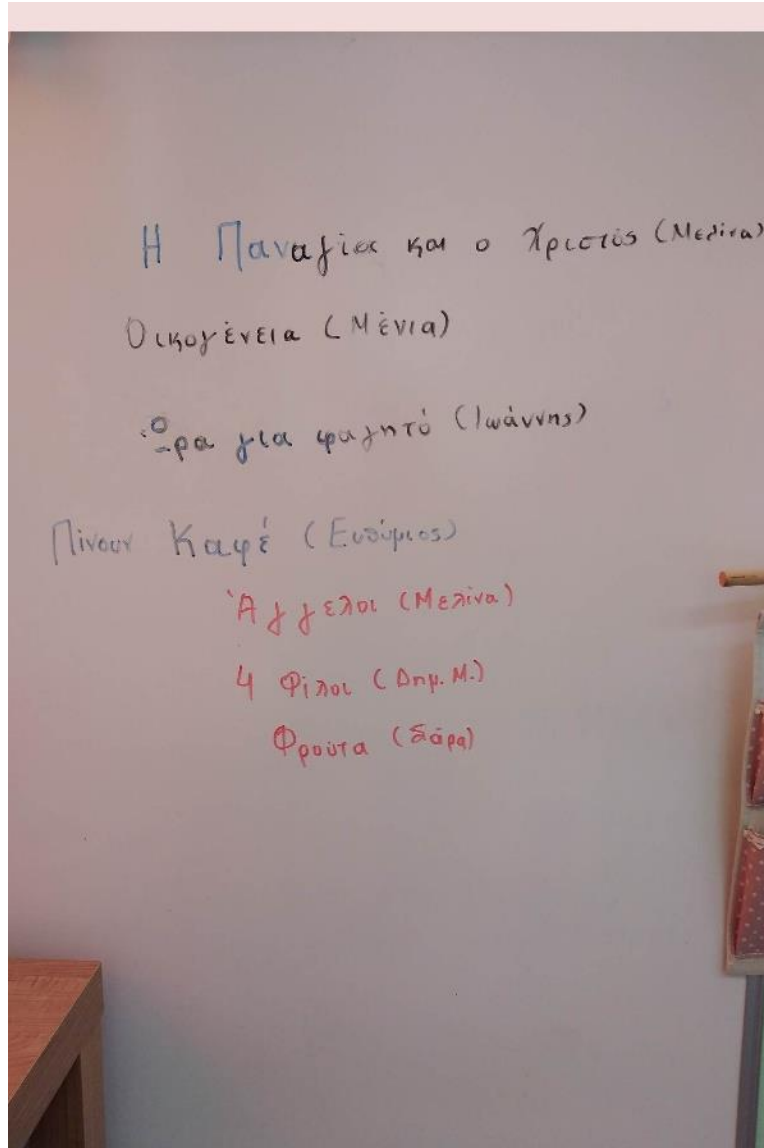 Η Παναγία και ο Χριστός (Μελίνα)
Οικογένεια (Μένια)
Ώρα για φαγητό (Ιωάννης)
Πίνουν Καφέ (Ευθύμιος)
Άγγελοι (Μελίνα)
4 Φίλοι (Δημ. Μ.)
Φρούτα (Σάρα)